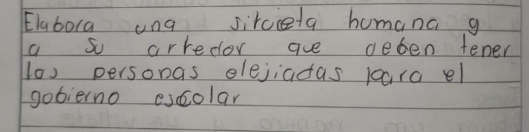 Elabora una sirueta humana y
a su arredor que deben tener
las personas elejiadas para el
gobierno escolar